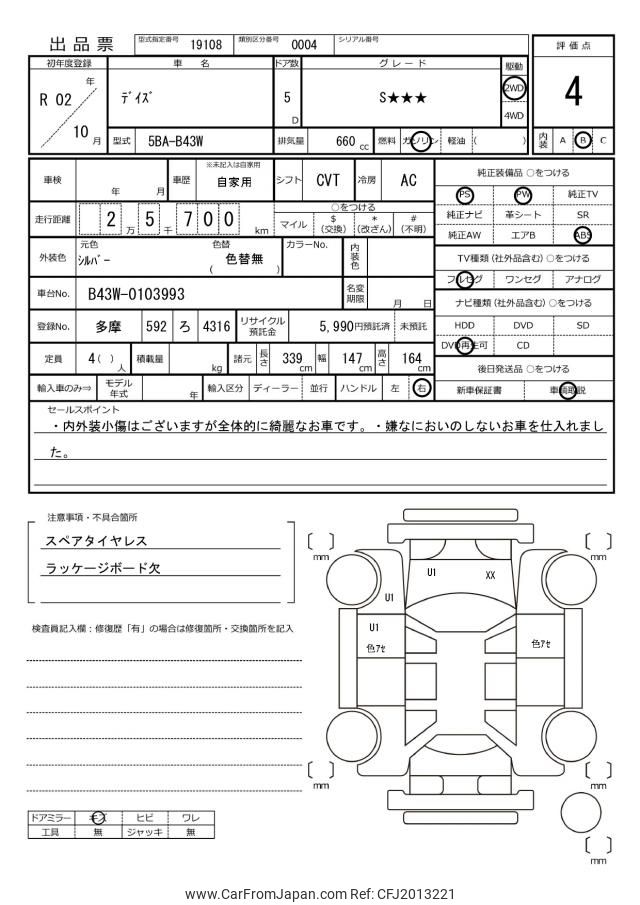 出品票
型式指定番号 19108 類別区分番号 0004 シリアル番号
評価点
初年度登録 車名 ドア数 グレード 駆動
R 02 年 10 月 デイズ 5 D S★★★ 2WD 4WD
4
型式 5BA-B43W 排気量 660 cc 燃料 ガソリン 軽油 ( )
内装 A B C
車検 年 月 車歴 ※未記入は自家用 自家用 シフト CVT 冷房 AC
走行距離 2 万 5 千 7 0 0 km
○をつける
マイル $ (交換) * (改ざん) # (不明)
外装色 元色 シルバー 色替 ( 色替無 ) カラーNo. 内装色
車台No. B43W-0103993 名変期限 月 日
登録No. 多摩 592 ろ 4316 リサイクル預託金 5,990円預託済 未預託
定員 4 ( ) 人 積載量 kg 諸元 長さ 339 cm 幅 147 cm 高さ 164 cm
輸入車のみ⇒ モデル年式 年 輸入区分 ディーラー 並行 ハンドル 左 右
純正装備品 ○をつける
PS PW 純正TV
純正ナビ 革シート SR
純正AW エアB ABS
TV種類 (社外品含む) ○をつける
フルセグ ワンセグ アナログ
ナビ種類 (社外品含む) ○をつける
HDD DVD SD
DVD再生可 CD
後日発送品 ○をつける
新車保証書 車輌取説
セールスポイント
・内外装小傷はございますが全体的に綺麗なお車です。・嫌なにおいのしないお車を仕入れまし
た。
注意事項・不具合箇所
スペアタイヤレス
ラッケージボード欠
検査員記入欄：修復歴「有」の場合は修復箇所・交換箇所を記入
ドアミラー キズ ヒビ ワレ
工具 無 ジャッキ 無
mm
mm
U1 XX
U1
U1
色アセ
色アセ
mm
mm
mm
www.CarFromJapan.com Ref: CFJ2013221